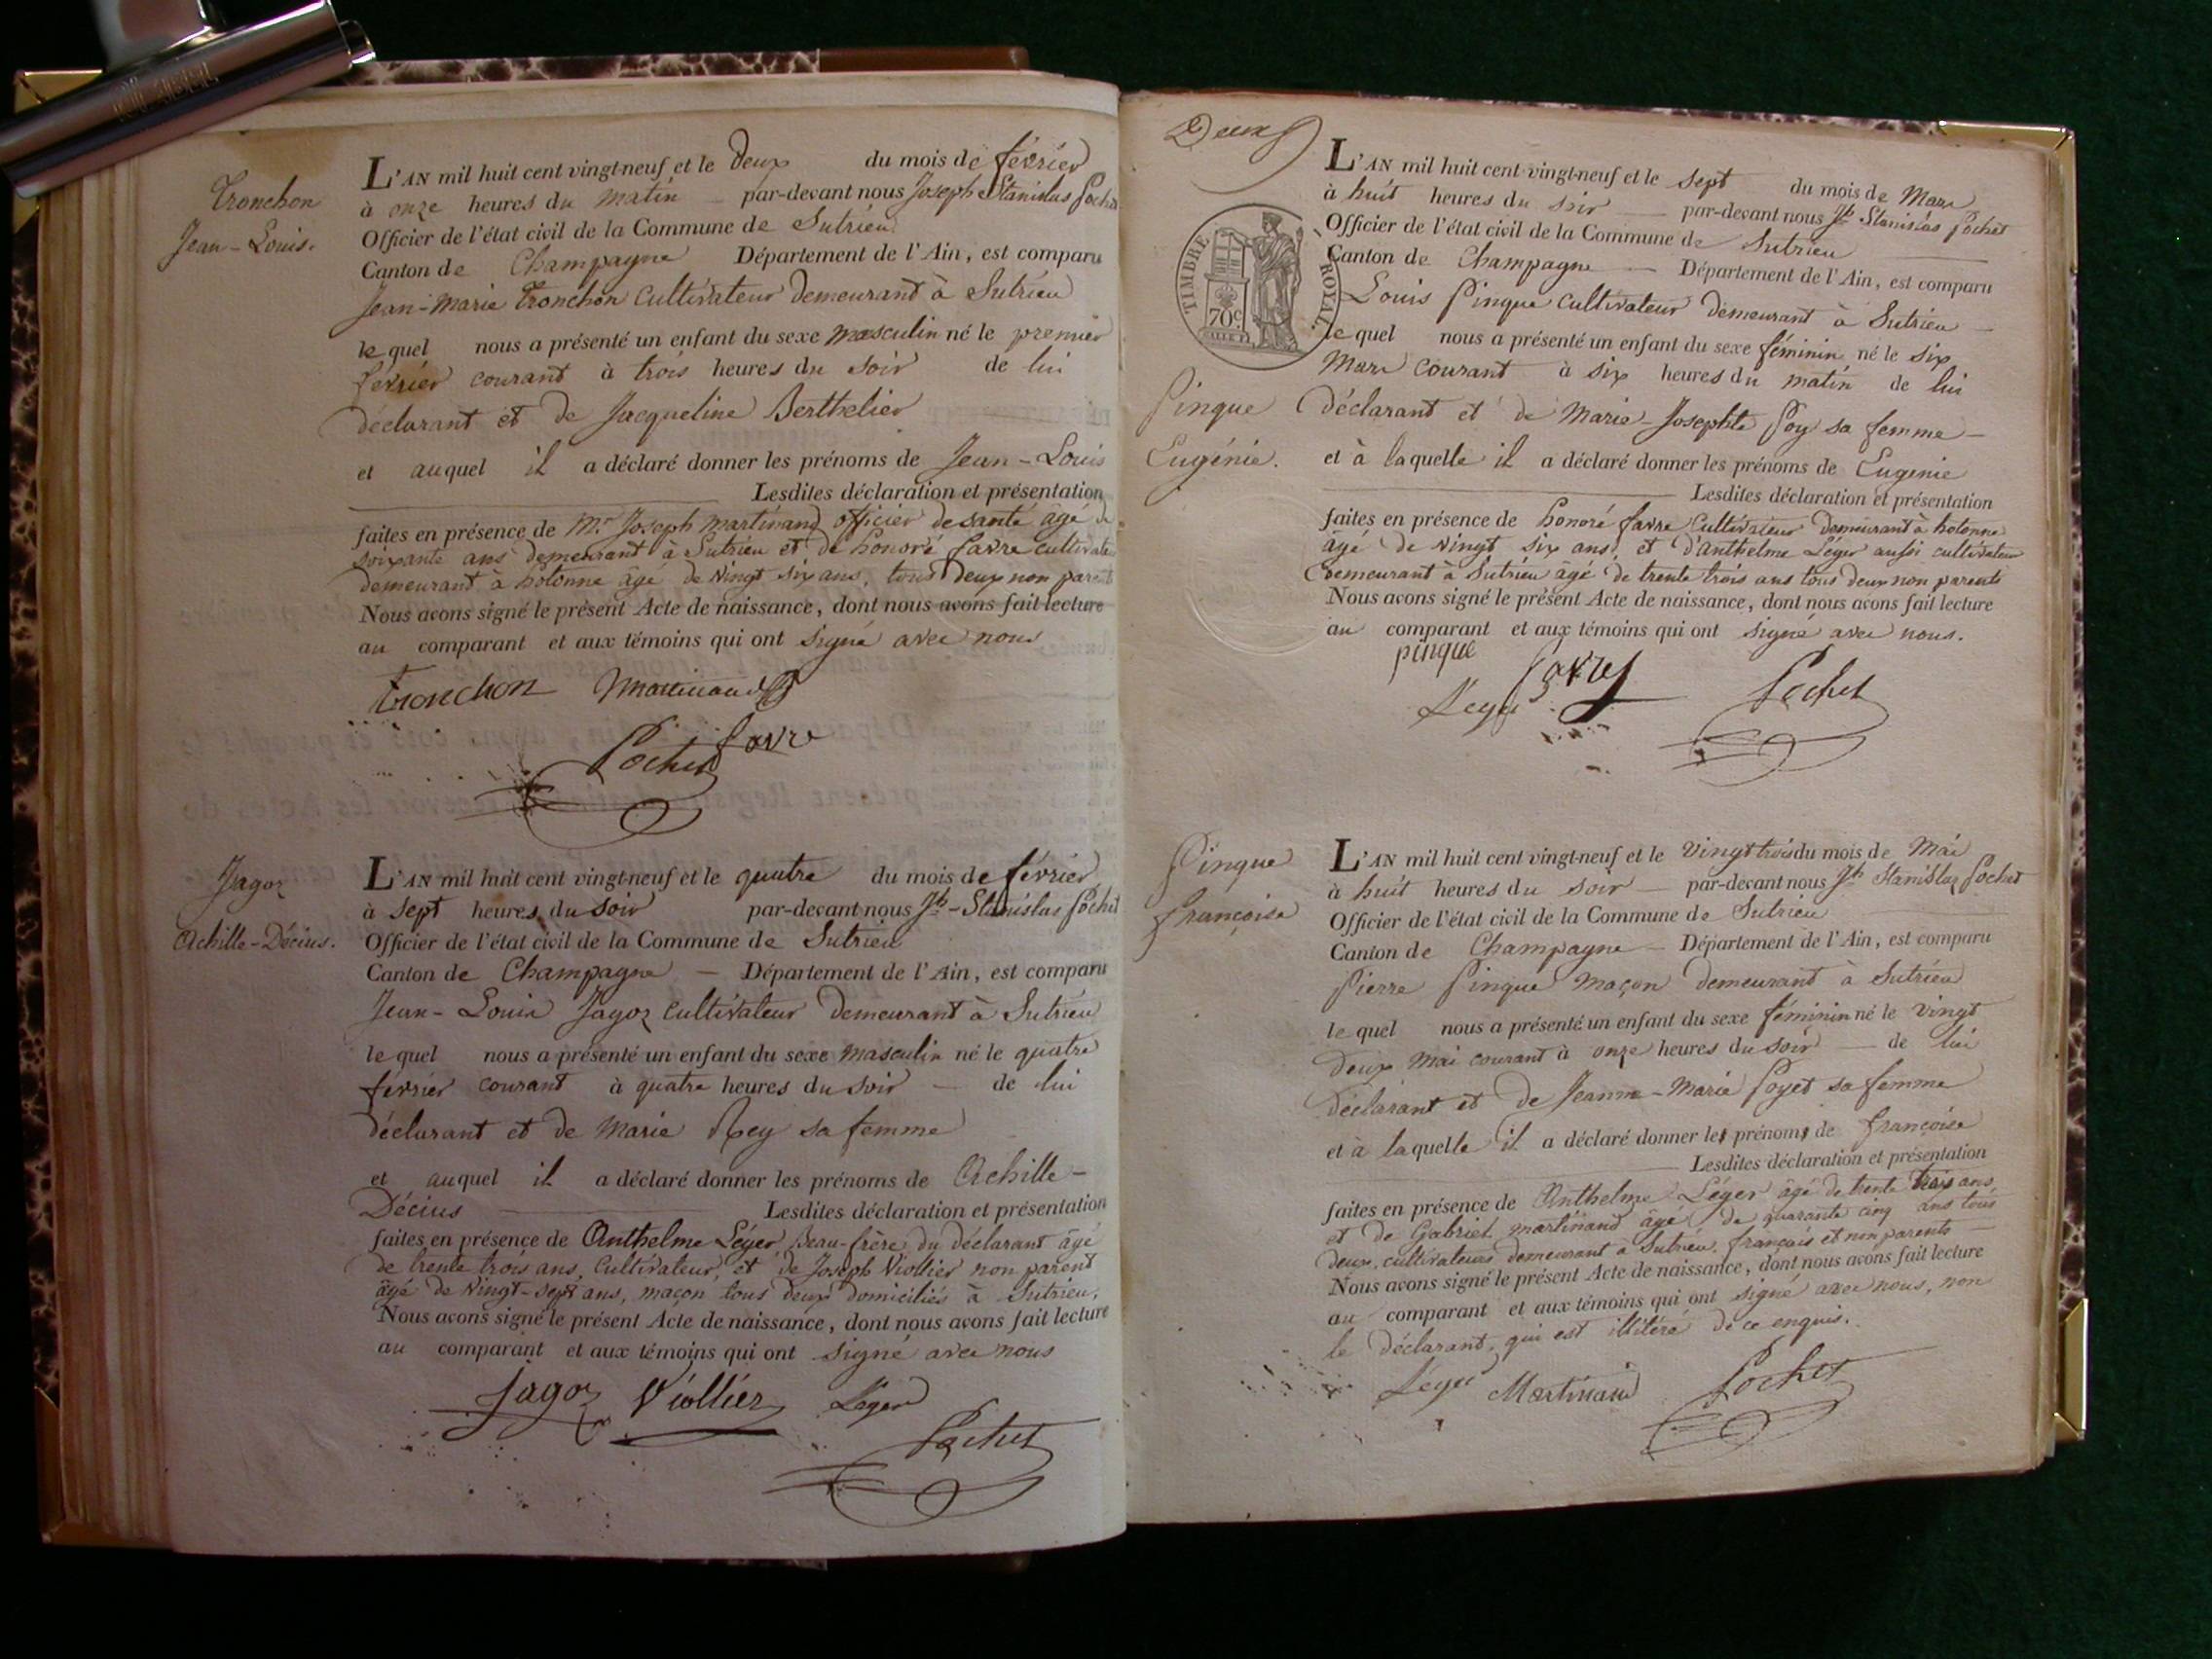 Tronchon
Jean-Louis.
L'AN mil huit cent vingt-neuf et le deux du mois de février
à onze heures du matin par-devant nous Joseph Stanislas Poche
Officier de l'état civil de la Commune de Sutrieu
Canton de Champagne Département de l'Ain, est comparu
Jean-Marie Tronchon cultivateur demeurant à Sutrieu
lequel nous a présenté un enfant du sexe masculin né le premier
février courant à trois heures du soir de lui
déclarant et de Jacqueline Berthelier
et auquel il a déclaré donner les prénoms de Jean-Louis
Lesdites déclaration et présentation
faites en présence de Mr Joseph Martinand officier de santé âgé de
soixante ans demeurant à Sutrieu et de honoré favre cultivate
demeurant à hotonne âgé de vingt six ans, tous deux non parent
Nous avons signé le présent Acte de naissance, dont nous avons fait lecture
au comparant et aux témoins qui ont signé avec nous
Tronchon Martinand
favre
Pochet
Jagoz
Achille-Décius.
L'AN mil huit cent vingt-neuf et le quatre du mois de février
à sept heures du soir par-devant nous Jh-Stanislas Pochet
Officier de l'état civil de la Commune de Sutrieu
Canton de Champagne — Département de l'Ain, est comparu
Jean-Louis Jagoz cultivateur demeurant à Sutrieu
lequel nous a présenté un enfant du sexe masculin né le quatre
février courant à quatre heures du soir — de lui
déclarant et de Marie Rey sa femme
et auquel il a déclaré donner les prénoms de Achille-
Décius Lesdites déclaration et présentation
faites en présence de Anthelme Léger Beau-frère du déclarant âgé
de trente trois ans, Cultivateur, et de Joseph Viollier non parent
âgé de vingt-sept ans, maçon tous deux domiciliés à Sutrieu,
Nous avons signé le présent Acte de naissance, dont nous avons fait lecture
au comparant et aux témoins qui ont signé avec nous
Jagoz Viollier Léger
Pochet
Deux
TIMBRE ROYAL.
70c
L'AN mil huit cent vingt-neuf et le sept du mois de Mars
à huit heures du soir — par-devant nous Jh Stanislas Pochet
Officier de l'état civil de la Commune de Sutrieu
Canton de Champagne — Département de l'Ain, est comparu
Louis Pinque cultivateur demeurant à Sutrieu —
lequel nous a présenté un enfant du sexe féminin né le six
Mars courant à six heures du matin de lui
Pinque
Eugénie.
déclarant et de Marie-Josephte Poy sa femme —
et à laquelle il a déclaré donner les prénoms de Eugenie
Lesdites déclaration et présentation
faites en présence de honoré favre Cultivateur demeurant à hotonne
âgé de vingt six ans, et d'anthelme Léger aussi cultivateur
demeurant à Sutrieu âgé de trente trois ans tous deux non parents
Nous avons signé le présent Acte de naissance, dont nous avons fait lecture
au comparant et aux témoins qui ont signé avec nous.
pinque
favre
Leger Pochet
Pinque
françoise
L'AN mil huit cent vingt-neuf et le vingt trois du mois de Mai
à huit heures du soir — par-devant nous Jh Stanislas Pochet
Officier de l'état civil de la Commune de Sutrieu
Canton de Champagne — Département de l'Ain, est comparu
Pierre Pinque maçon demeurant à Sutrieu
lequel nous a présenté un enfant du sexe féminin né le vingt
deux mai courant à onze heures du soir — de lui
déclarant et de Jeanne-Marie Poyet sa femme
et à laquelle il a déclaré donner les prénoms de françoise
Lesdites déclaration et présentation
faites en présence de Anthelme Léger âgé de trente trois ans,
et de Gabriel martinand âgé de quarante cinq ans tous
deux cultivateurs demeurant à Sutrieu, français et non parents —
Nous avons signé le présent Acte de naissance, dont nous avons fait lecture
au comparant et aux témoins qui ont signé avec nous, non
le déclarant, qui est illitéré de ce enquis.
Leger Martinand Pochet